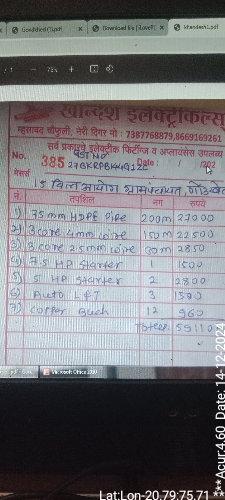 Download file | iLovePDF
khandesh1.pdf
/ 1 - 78% +
खान्देश इलेक्ट्रीकल्स
म्हसावद चौफुली, नेरी दिगर मो : 7387768879,8669169261
सर्व प्रकारचे इलेक्ट्रीक फिटींग्ज व अप्लायंसेस उपलब्ध
No. 385 GST NO Date : / /202
मेसर्स
15 वित्त आयोग ग्रामपंचायत,
नं. तपशिल नग रुपये
1) 75 mm HDPE Pipe 200m 27000
2) 3 core 4mm wire 150m 22500
3) 3 core 2.5mm wire 30m 2850
4) 7.5 HP starter 1 1500
5) 5 HP starter 2 2800
6) Auto L&T 3 1500
7) Copper 12 960
Total 59110
Microsoft Office 2010
Lat:Lon-20.79:75.71
***Acur:4.60 Date: 14-12-2024